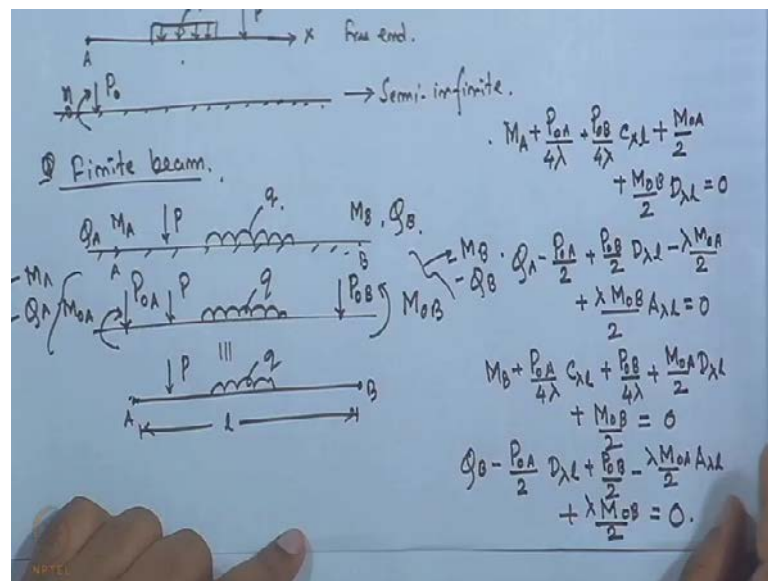 P
A
x Free end.
P₀
→ Semi-infinite.
Finite beam.
Q_A M_A P q. M_B, Q_B
A B
-M_A
-Q_A M_0A P_0A P q P_0B M_0B -M_B
-Q_B
|||
P q
A B
l
M_A + P_0A/4λ + P_0B/4λ C_λl + M_0A/2
+ M_0B/2 D_λl = 0
Q_A - P_0A/2 + P_0B/2 D_λl - λM_0A/2
+ λM_0B/2 A_λl = 0
M_B + P_0A/4λ C_λl + P_0B/4λ + M_0A/2 D_λl
+ M_0B/2 = 0
Q_B - P_0A/2 D_λl + P_0B/2 - λM_0A/2 A_λl
+ λM_0B/2 = 0.
NPTEL